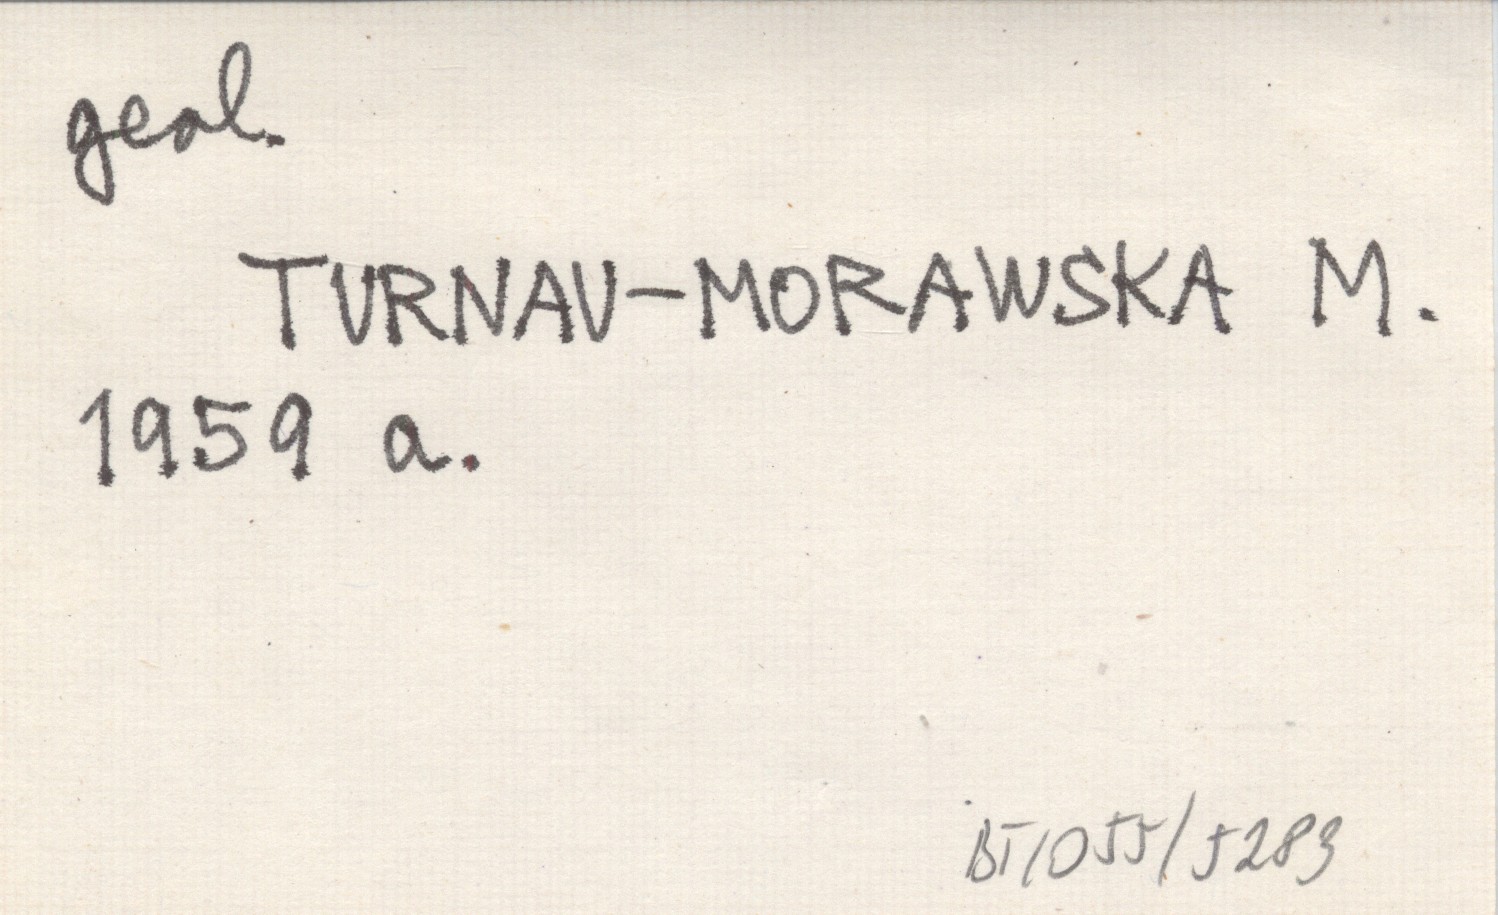 geol.
TURNAU-MORAWSKA M.
1959 a.
BT/055/5283